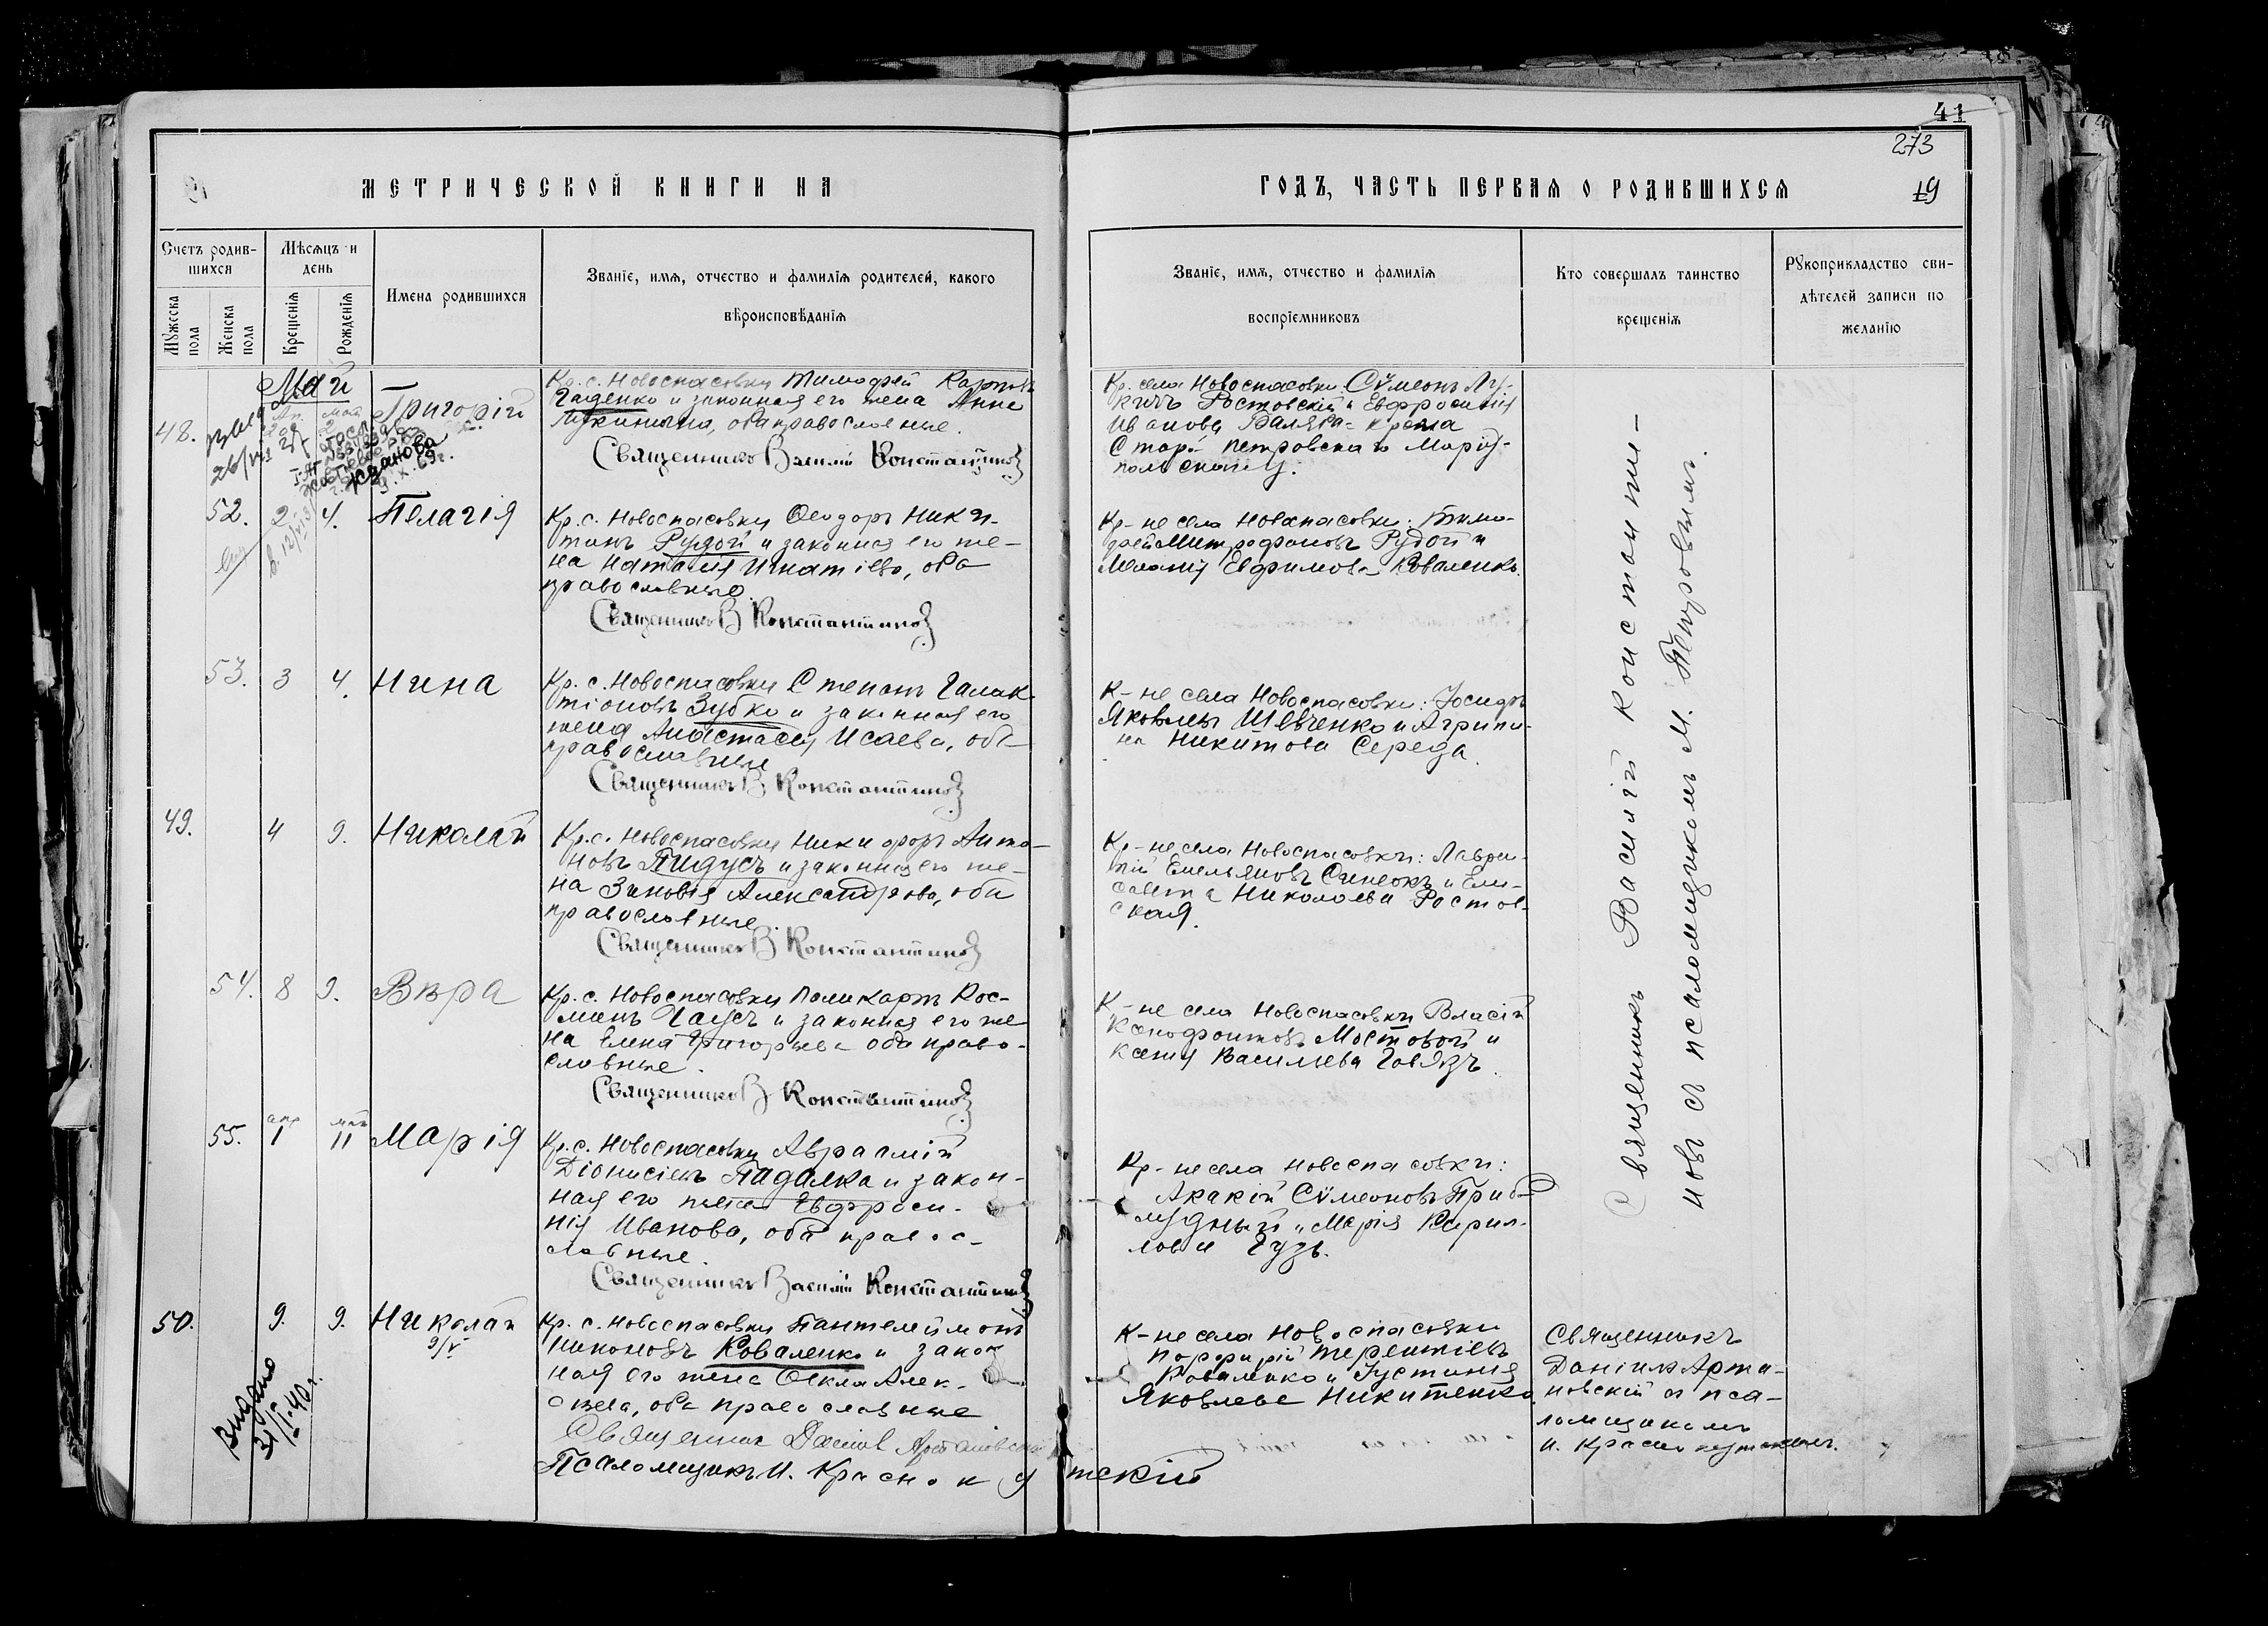 41
273
19
МЕТРИЧЕСКОЙ КНИГИ НА
ГОДЪ, ЧАСТЬ ПЕРВАЯ О РОДИВШИХСЯ
Счетъ родив-
шихся
Мѣсяцъ и
день
Имена родившихся
Званіе, имя, отчество и фамилія родителей, какого
вѣроисповѣданія
Мужеска
пола
Женска
пола
Крещенія
Рожденія
Званіе, имя, отчество и фамилія
воспріемниковъ
Кто совершалъ таинство
крещенія
Рукоприкладство сви-
дѣтелей записи по
желанію
Май
48.
Григорій
Кр. с. Новоспасовки Тимофей Карповъ
Гащенко и законная его жена Анна
Лукинична, оба православные.
Священникъ Василій Константиновъ
Кр. села Новоспасовки Сѵмеонъ Лу-
кичъ Ростовскій и Евфросинія
Иванова
Стар. Петровска го Маріу-
польскаго у.
Жданова
52. 2 4. Пелагія
Кр. с. Новоспасовки Ѳеодоръ Ники-
тинъ Рудой и законная его же-
на Наталія Игнатіева, оба
православные.
Священникъ В Константиновъ
Кр-не села Новоспасовки: Тимо-
фей Митрофановъ Рудой и
Меланія Евфимова Коваленко.
53. 3 4. Нина
Кр. с. Новоспасовки Степанъ Галак-
тіоновъ Зубко и законная его
жена Анастасія Исаева, оба
православные
Священникъ В Константиновъ
К-не села Новоспасовки: Іосифъ
Яковлевъ Шевченко и Агрипи-
на Никитова Середа.
49. 4 9. Николай
Кр. с. Новоспасовки Никифоръ Анто-
новъ Пидусъ и законная его же-
на Зиновія Александрова, оба
православные.
Священникъ В Константиновъ
Кр-не села Новоспасовки: Лаврен-
тій Емельяновъ Синеокъ и Ели-
савета Николаева Ростов-
ская.
54. 8 9. Вѣра
Кр. с. Новоспасовки Поликарпъ Кос-
минъ Гаусъ и законная его же-
на Елена Григорьева оба право-
славные.
Священникъ В Константиновъ
К-не села Новоспасовки Власій
Ксенофонтовъ Мостовой и
Ксенія Васильева Говязъ.
апр май
55. 1 11 Марія
Кр. с. Новоспасовки Авраамій
Діонисіевъ Падалка и закон-
ная его жена Евфроси-
нія Иванова, оба правос-
лавные.
Священникъ Василій Константиновъ
Кр-не села Новоспасовки:
Акакій Сѵмеоновъ Приб-
лудный и Марія Кирил-
лова Гузь.
50. 9. 9. Николай
9/V
Кр. с. Новоспасовки Пантелеймонъ
Никоновъ Коваленко и закон
ная его жена Ѳекла Алек-
сѣева, оба православные
Священник Даніил Артановскій
Псаломщикъ И. Краснокутскій
К-не села Новоспасовки
Порфирій Терентіевъ
Коваленко и Іустинія
Яковлева Никитенко.
Священникъ
Даніилъ Арта-
новскій съ пса-
ломщикомъ
И. Краснокутскимъ.
Видано
31/I.40 г.
Священникъ Василій Константи-
новъ съ псаломщикомъ М. Петровымъ.